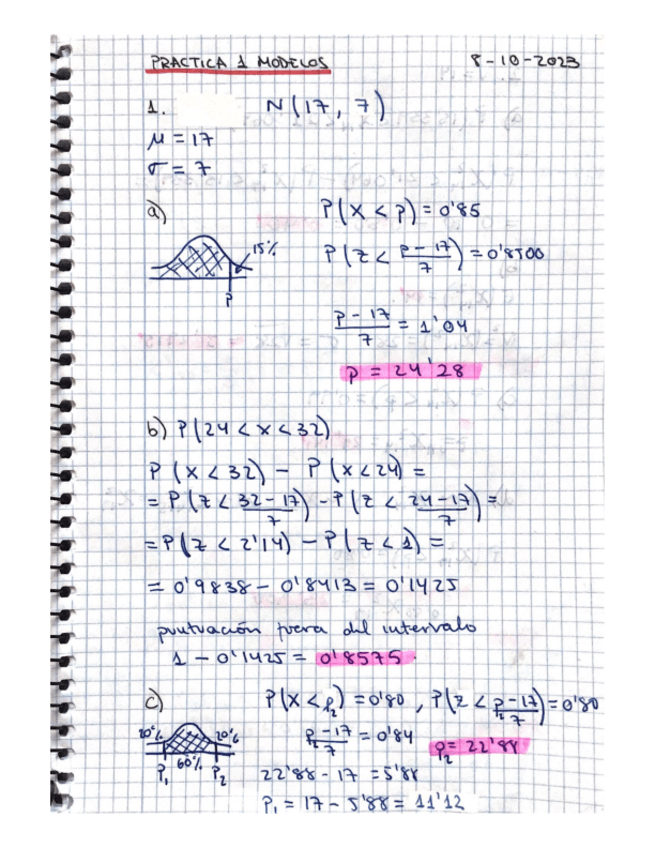 PRACTICA 1 MODELOS 8-10-2023
1. N(17, 7)
μ = 17
σ = 7
a) P(X < p) = 0'85
15%
P(Z < p-17/7) = 0'8500
P
p-17/7 = 1'04
p = 24'28
b) P(24 < x < 32)
P(x < 32) - P(x < 24) =
= P(Z < 32-17/7) - P(Z < 24-17/7) =
= P(Z < 2'14) - P(Z < 1) =
= 0'9838 - 0'8413 = 0'1425
puntuación fuera del intervalo
1 - 0'1425 = 0'8575.
c) P(X < P₂) = 0'80 , P(Z < p-17/7) = 0'80
20% 20%
60%
P₁ P₂
P₂-17/7 = 0'84 P₂ = 22'88
22'88 - 17 = 5'88
P₁ = 17 - 5'88 = 11'12